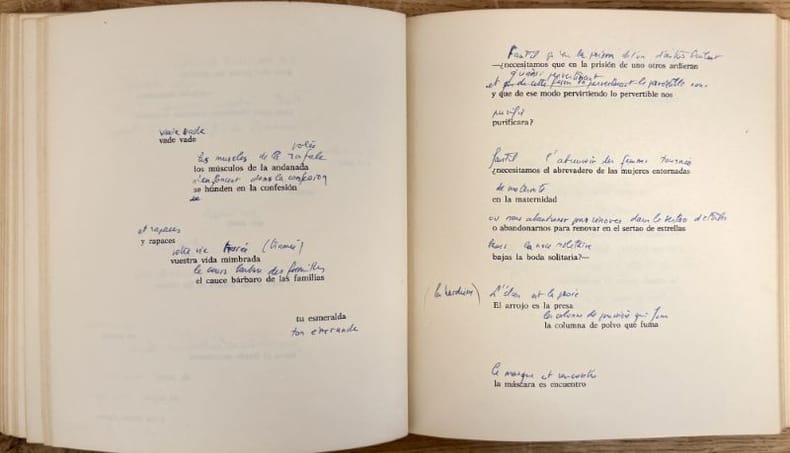 vade vade
vade vade
volée
les muscles de la rafale
los músculos de la andanada
s'enfoncent dans la confession
se hunden en la confesión
et rapaces
y rapaces
votre vie
vuestra vida mimbrada
le cours barbare des familles
el cauce bárbaro de las familias
tu esmeralda
ton émeraude
Faut-il qu'en la prison d'un
—¿necesitamos que en la prisión de uno otros ardieran
et
y que de ese modo pervirtiendo lo pervertible nos
purifie
purificara?
Faut-il l'abreuvoir des femmes
¿necesitamos el abrevadero de las mujeres entornadas
de maternité
en la maternidad
ou nous abandonner pour rénover dans le sertao d'étoiles
o abandonarnos para renovar en el sertao de estrellas
la noce solitaire
bajas la boda solitaria?—
L'élan est la proie
El arrojo es la presa
la colonne de poussière qui fume
la columna de polvo que fuma
le masque est rencontre
la máscara es encuentro